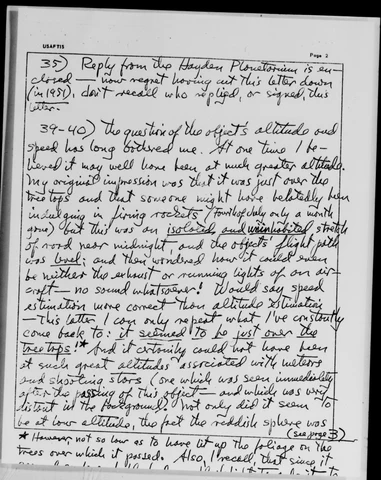 USAFTIS
Page 2
35) Reply from the Hayden Planetarium is en-
closed — now regret having cut this letter down
(in 1951), don't recall who replied, or signed, this
letter.
39-40) The question of the objects altitude and
speed has long bothered me. At one time I be-
lieved it may well have been at much greater altitude.
My original impression was that it was just over the
treetops and that someone might have belatedly been
indulging in firing rockets (Fourth of July only a month
gone) but this was an isolated and uninhabited stretch
of road near midnight, and the objects' flight path
was level; and then wondered how it could even
be neither the exhaust or running lights of an air-
craft — no sound whatsoever! Would say speed
estimation more correct than altitude estimation
— This letter I can only repeat what I've constantly
come back to: it seemed to be just over the
treetops!* And it certainly could not have been
at such great altitudes associated with meteors
and shooting stars (one which was seen immediately
after the passing of this object — and which was very
distant in the foreground). Not only did it seem to
be at low altitude, the fact the reddish sphere was
(see page 3)
* However, not so low as to have lit up the foliage on the
trees over which it passed. Also, I recall, that since it